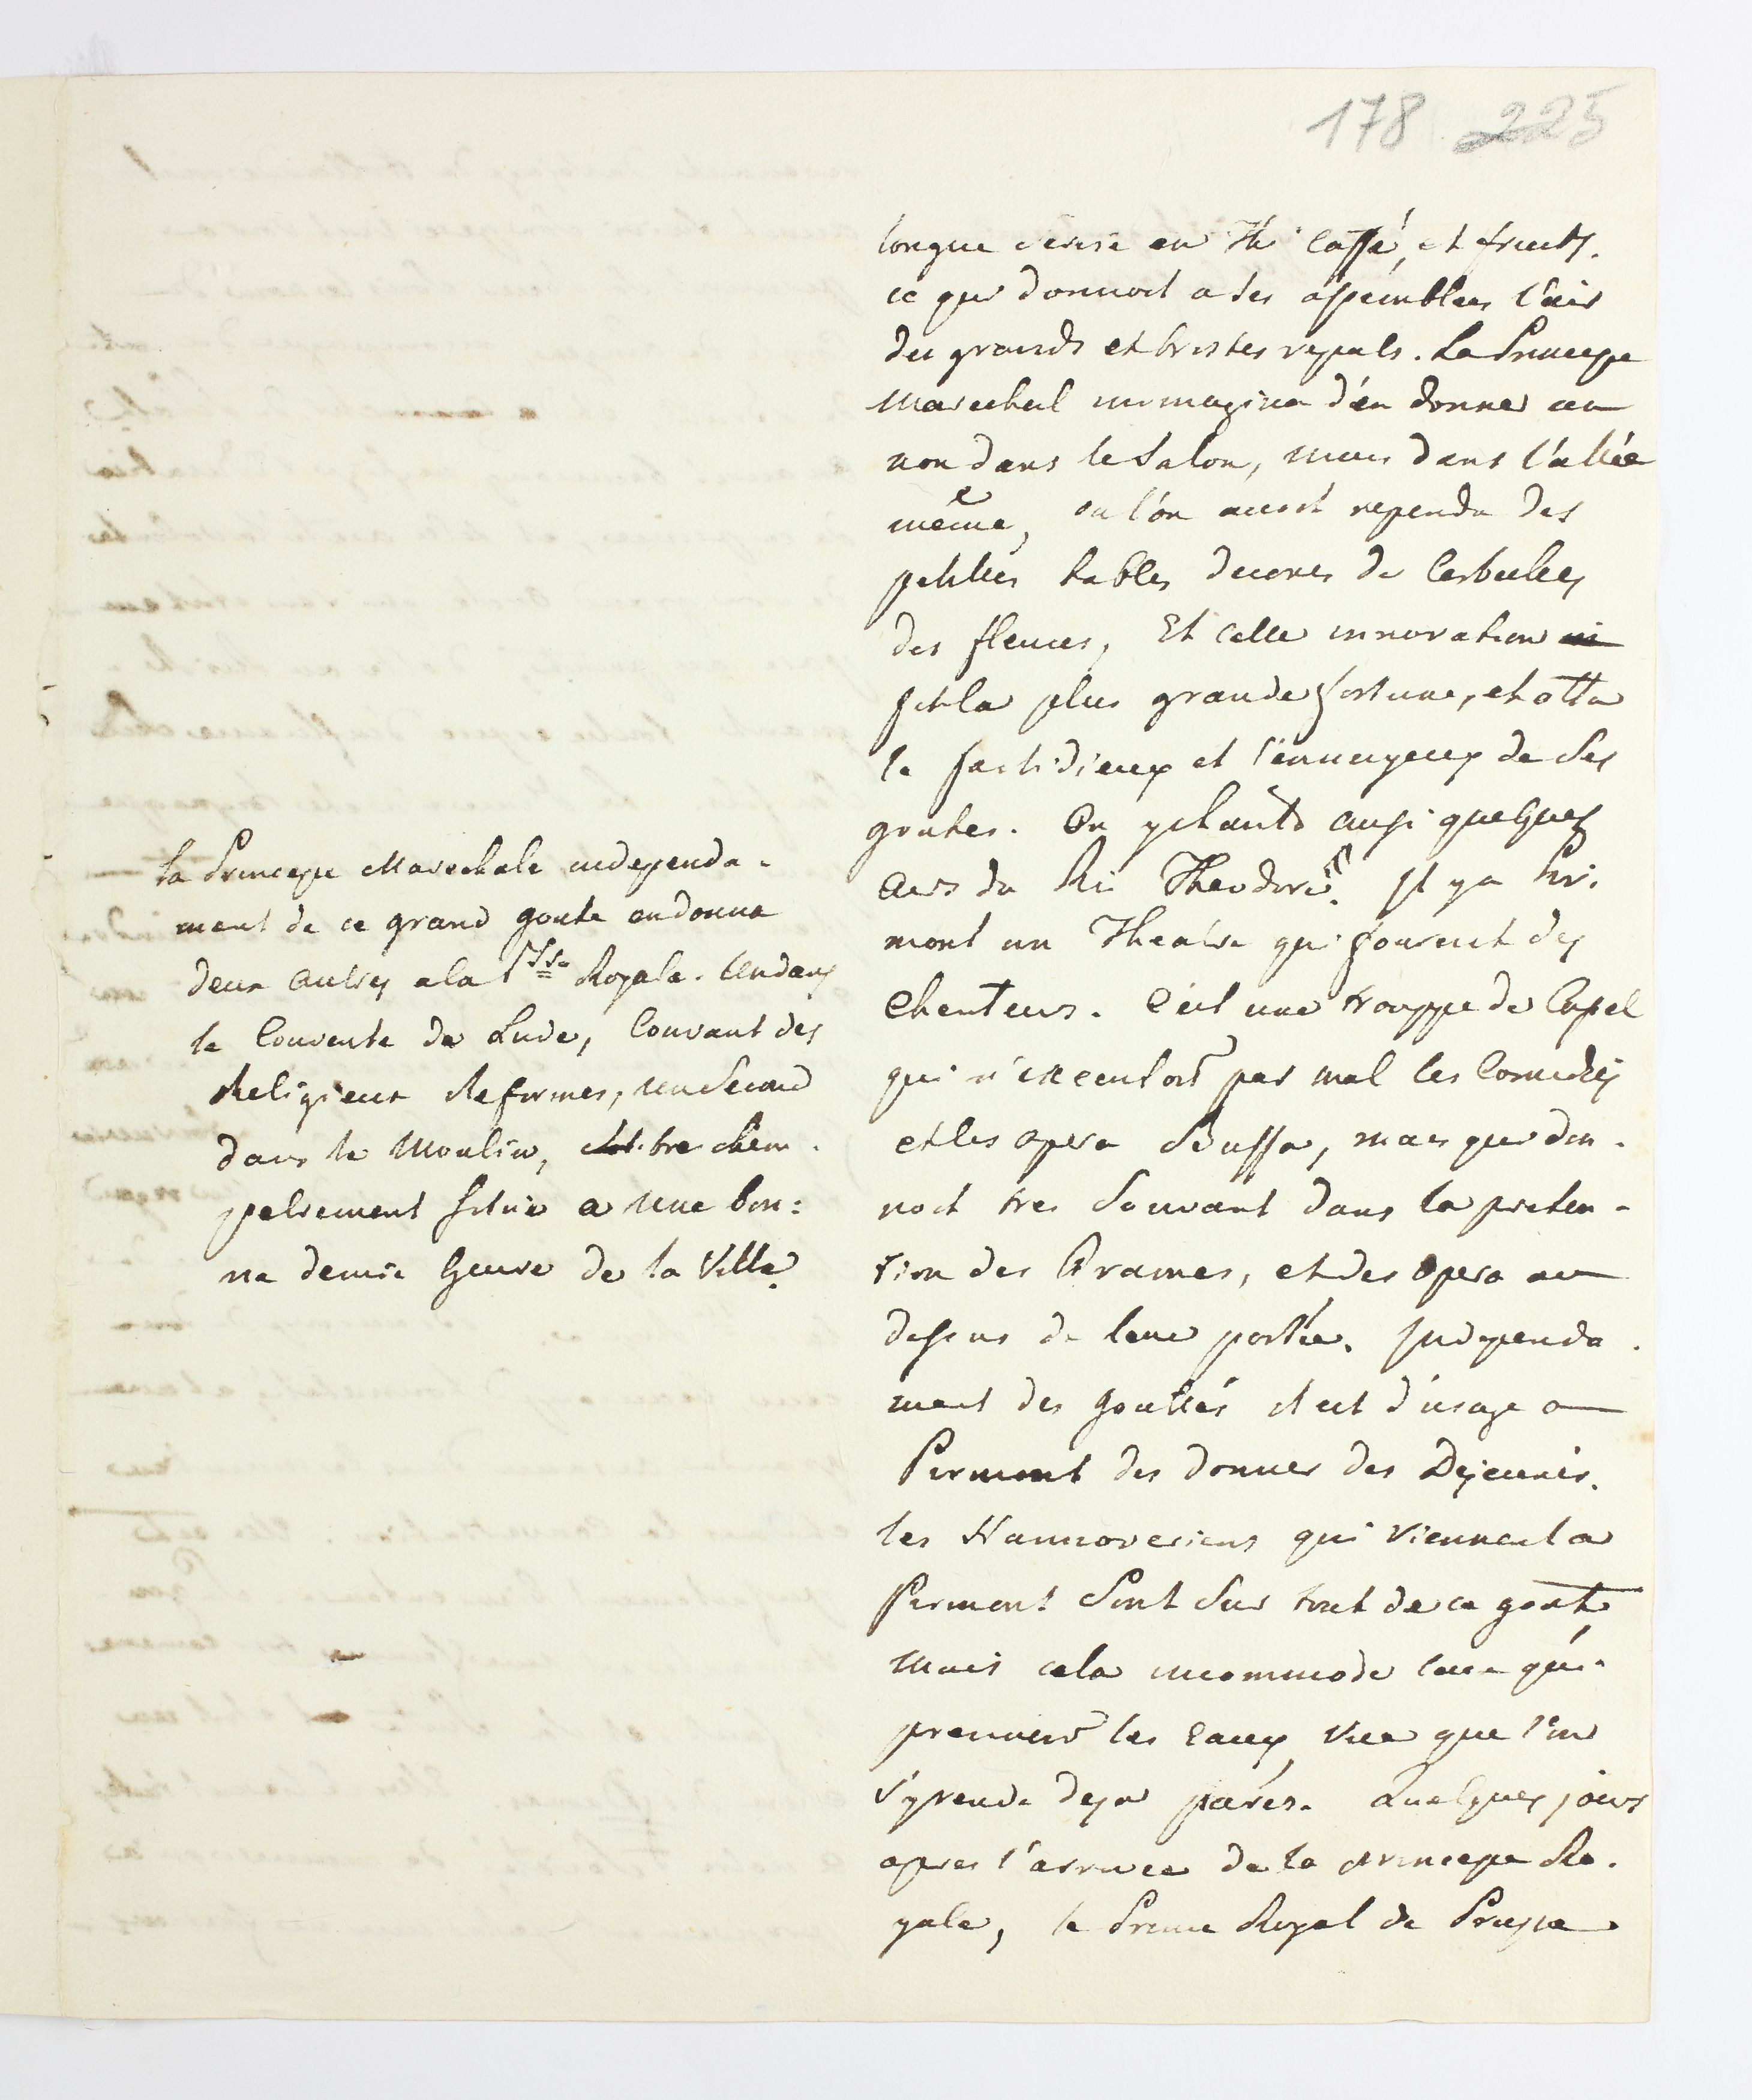 178 225
longue serie en Thé Caffé, et fruits.
ce qui donnoit a ses assemblees l'air
des grands et tristes repas. La Princesse
Marechal immagina d'en donner un
non dans le Salon, mais dans l'allée
même, ou l'on avoit rependu des
petites tables decores de Corbeiles
des fleurs, Et cette innovation
fit la plus grande fortune, et otta
le fastidieux et l'ennuyeux de ses
goutes. On y chanta aussi quelques
airs du Roi Theodore. Il y a Pir.
mont un Theatre qui fournit des
Chanteurs. C'est une trouppe de Capel
qui n'executoit pas mal les Comedies
et les opera Buffa, mais qui don-
noit tres souvant dans la preten-
tion des Drames, et des Opera au
dessus de leur portée. Independa-
ment des gouttés il est d'usage a
Pirmont des donner des Dejeunés.
les Hannoveriens qui viennent a
Pirmont sont sur tout de ce gout,
Mais cela incommode ceux qui
prennent les Eaux, vue que l'on
s'y rende deja parés. Quelques jours
apres l'arrivee de la princesse Ro-
yale, le Prince Royal de Prusse
La Princesse Marechale independa-
ment de ce grand goute en donna
deux autres a la Psse Royale. Un dans
le Couvente de Lude, Couvant des
Religieux Reformes, un Second
dans le Moulin, cham-
petrement situé a une bon:
ne demie heure de la Ville.